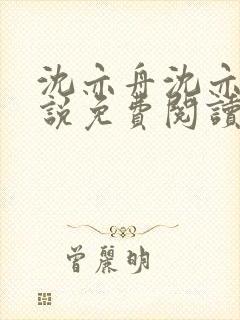 沈亦舟沈亦
說免費閱讀
曾麗明